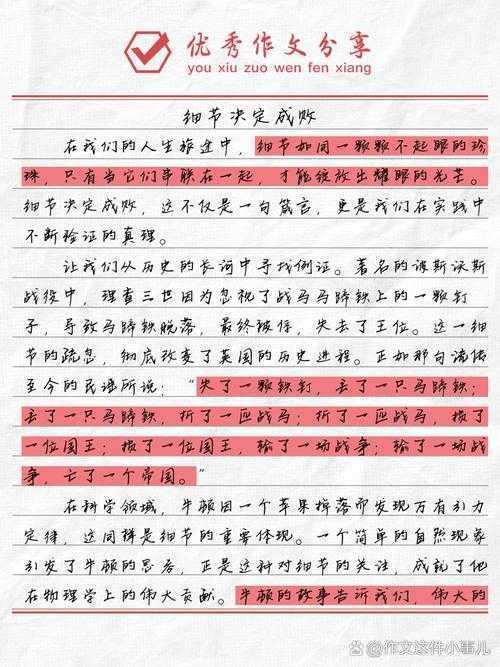 优秀作文分享
you xiu zuo wen fen xiang
细节决定成败
在我们的人生旅途中，细节如同一颗颗不起眼的珍
珠，只有当它们串联在一起，才能绽放出耀眼的光芒。
细节决定成败，这不仅是一句箴言，更是我们在实践中
不断验证的真理。
让我们从历史的长河中寻找例证。著名的波斯沃斯
战役中，理查三世因为忽视了战马马蹄铁上的一颗钉
子，导致马蹄铁脱落，最终被俘，失去了王位。这一细
节的疏忽，彻底改变了英国的历史进程。正如那句流传
至今的民谣所说：“失了一颗铁钉，丢了一只马蹄铁；
丢了一只马蹄铁，折了一匹战马；折了一匹战马，损了
一位国王；损了一位国王，输了一场战争；输了一场战
争，亡了一个帝国。”
在科学领域，牛顿因一个苹果掉落而发现万有引力
定律，这同样是细节的重要体现。一个简单的自然现象
引发了牛顿的思考，正是这种对细节的关注，成就了他
在物理学上的伟大贡献。牛顿的故事告诉我们，伟大的
@作文这件小事儿